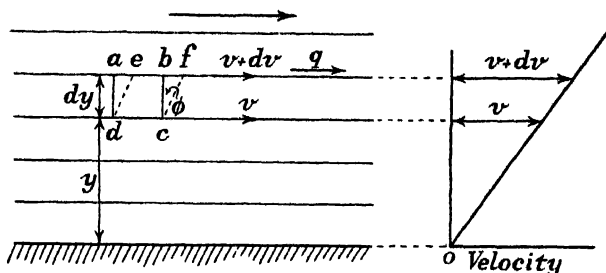 a e b f v+dv q
dy ϕ v
d c
y
v+dv
v
o Velocity